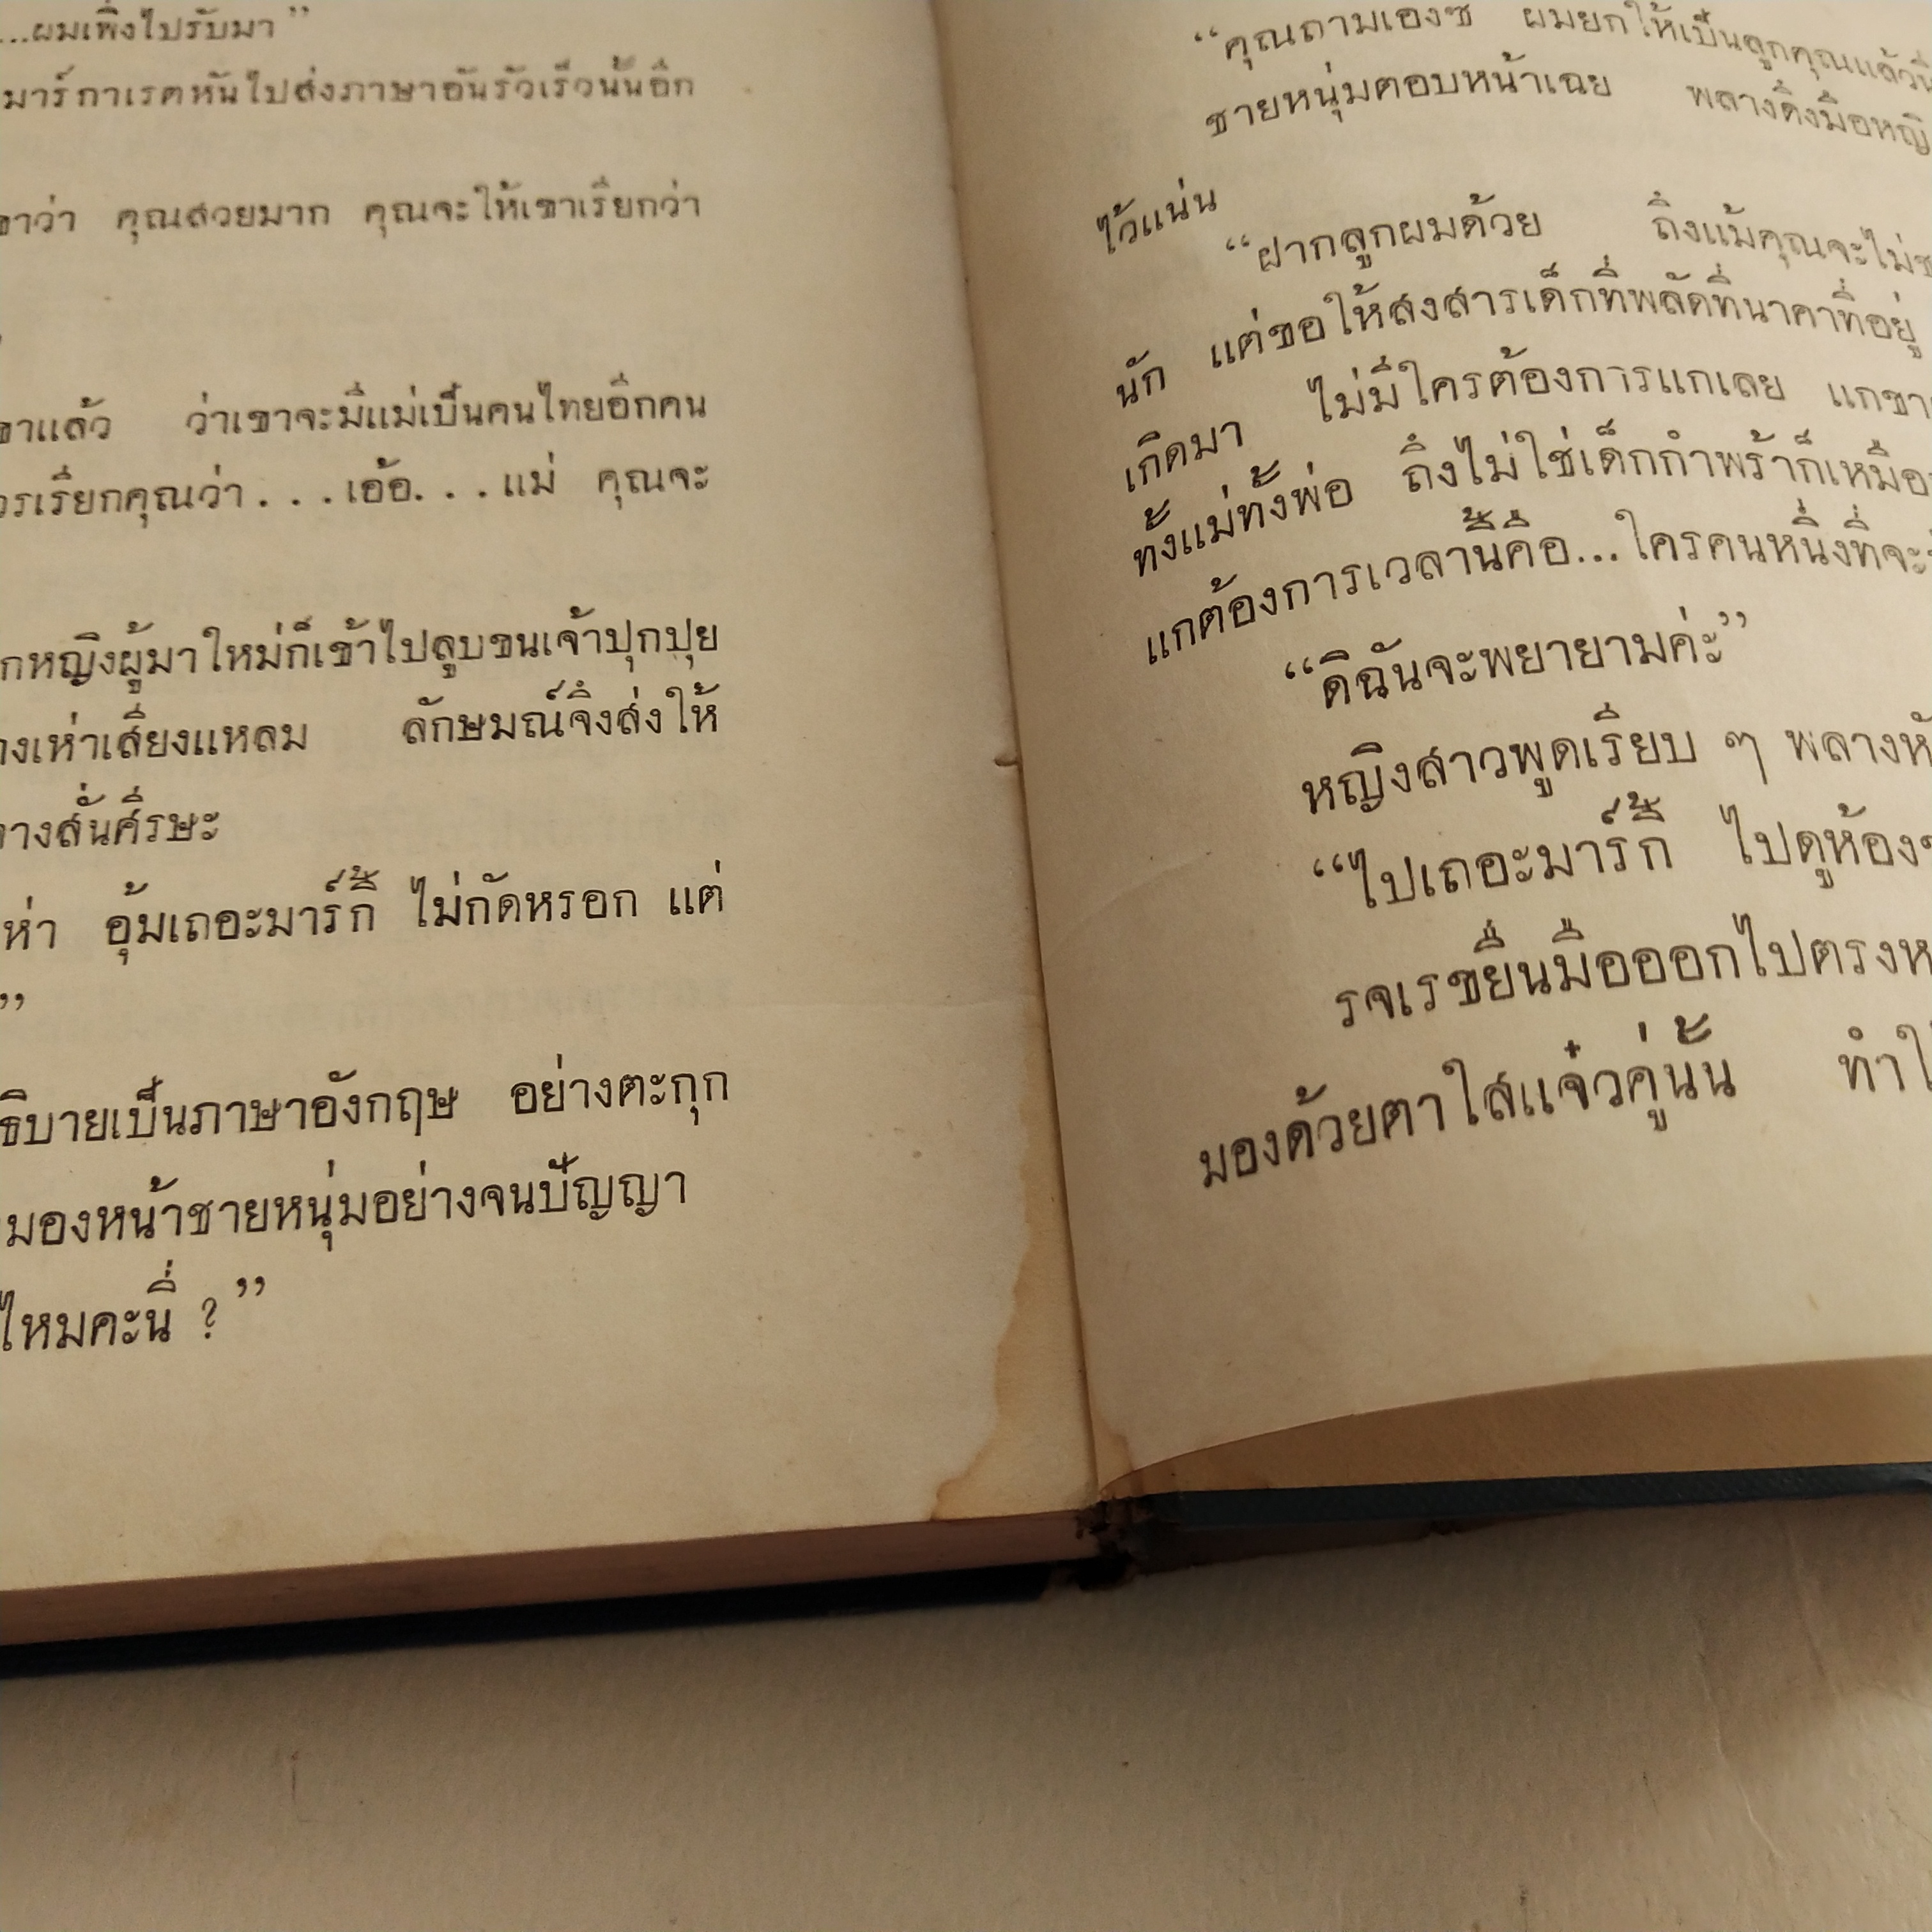 ...ผมเพิ่งไปรับมา”
มาร์กาเรตหันไปส่งภาษาอันรัวเร็วนั้นอีก
ขาว่า คุณสวยมาก คุณจะให้เขาเรียกว่า
ขาแล้ว ว่าเขาจะมีแม่เป็นคนไทยอีกคน
วรเรียกคุณว่า...เอ้อ...แม่ คุณจะ
กหญิงผู้มาใหม่ก็เข้าไปลูบขนเจ้าปุกปุย
างเห่าเสียงแหลม ลักษมณ์จึงส่งให้
างสั่นศีรษะ
ห่า อุ้มเถอะมาร์กี้ ไม่กัดหรอก แต่
”
ธิบายเป็นภาษาอังกฤษ อย่างตะกุก
มองหน้าชายหนุ่มอย่างจนปัญญา
ไหมคะนี่ ?”
“คุณถามเองซ ผมยกให้เป็นลูกคุณแล้วนี่
ชายหนุ่มตอบหน้าเฉย พลางดึงมือหญิ
ไว้แน่น
“ฝากลูกผมด้วย ถึงแม้คุณจะไม่ช
นัก แต่ขอให้สงสารเด็กที่พลัดที่นาคาที่อยู่
เกิดมา ไม่มีใครต้องการแกเลย แกขา
ทั้งแม่ทั้งพ่อ ถึงไม่ใช่เด็กกำพร้าก็เหมือ
แกต้องการเวลานี้คือ...ใครคนหนึ่งที่จะ
“ดิฉันจะพยายามค่ะ”
หญิงสาวพูดเรียบ ๆ พลางหั
“ไปเถอะมาร์กี้ ไปดูห้อง
รจเรขยื่นมือออกไปตรงห
มองด้วยตาใสแจ๋วคู่นั้น ทำใ